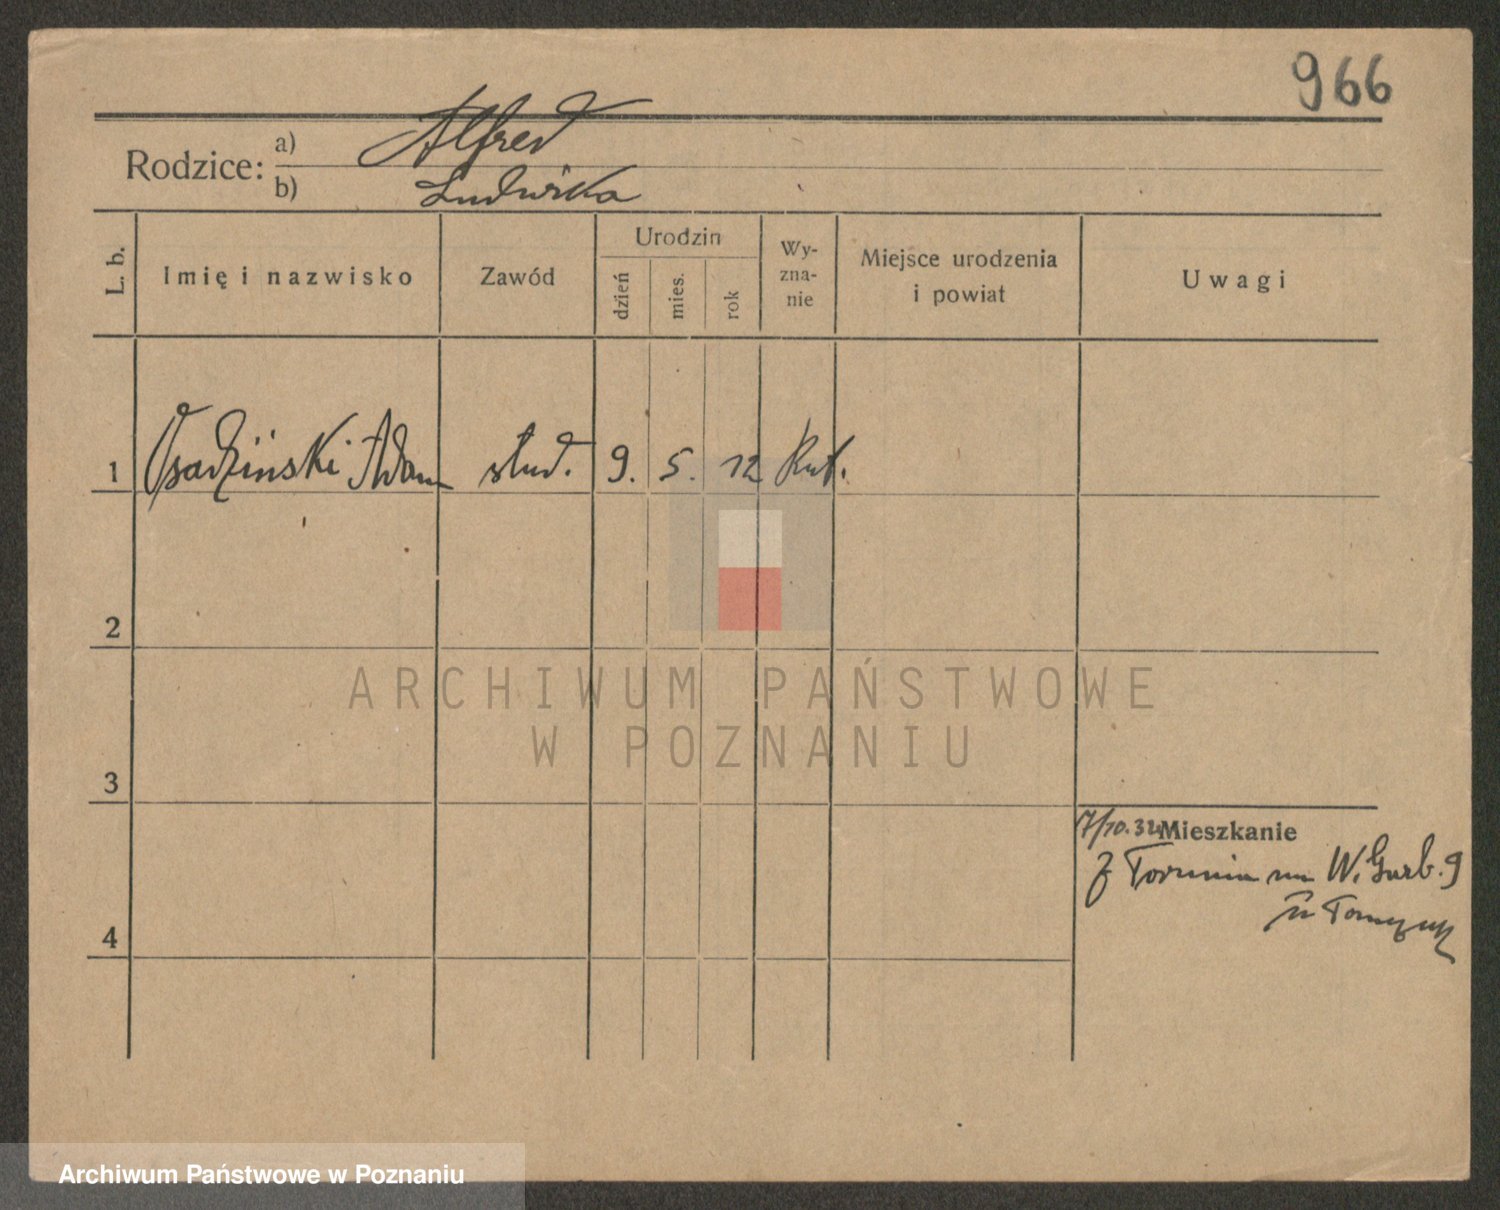 966
Rodzice: a) Alfred
b) Ludwika
L. b.
Imię i nazwisko
Zawód
Urodzin
dzień
mies.
rok
Wy-
zna-
nie
Miejsce urodzenia
i powiat
Uwagi
1 Osadziński Adam stud. 9. 5. 12
2
3
4
7/10.32 Mieszkanie
z Torunia na W. Garb. 9
ARCHIWUM PAŃSTWOWE
W POZNANIU
Archiwum Państwowe w Poznaniu